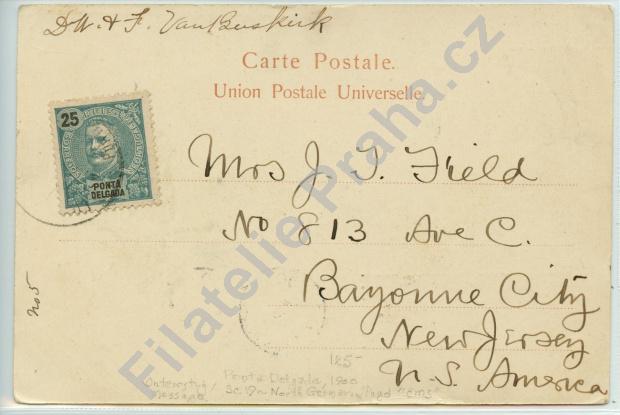 D.W. & F. VanBuskirk
Carte Postale.
Union Postale Universelle.
25
PONTA
DELGADA
Mrs J. T. Field
No 813 Ave C.
Bayonne City
New Jersey
U.S. America
No 5
125-
Ponta Delgada, 1900
message
North German
Filatelie Praha.cz